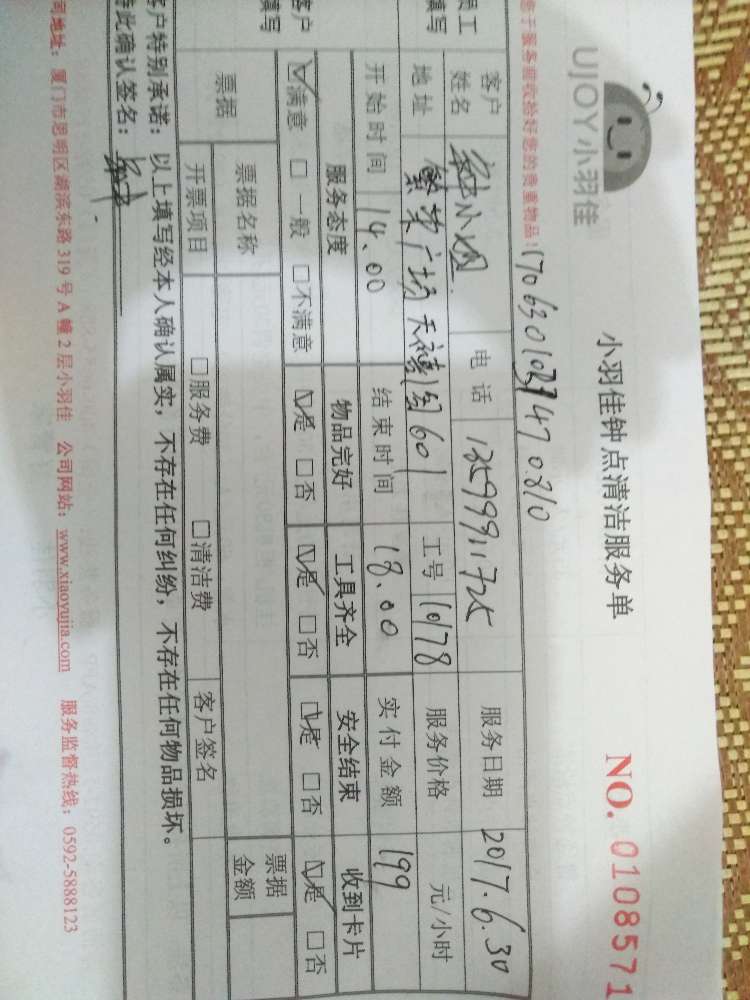 UJOY 小羽佳
小羽佳钟点清洁服务单
NO. 0108571
于服务前收拾好您的贵重物品!
员工
填写
客户
姓名
小姐
电话
13599911725
服务日期
2017.6.30
地址
繁荣广场天禧阁601
工号
10178
服务价格
元/小时
开始时间
14.00
结束时间
18.00
实付金额
199
客户
填写
服务态度
物品完好
工具齐全
安全结束
收到卡片
☑满意 □一般 □不满意
☑是 □否
☑是 □否
☑是 □否
☑是 □否
票据
票据名称
票据
金额
开票项目
□服务费 □清洁费
客户签名
客户特别承诺: 以上填写经本人确认属实, 不存在任何纠纷, 不存在任何物品损坏。
此确认签名:
司地址: 厦门市思明区湖滨东路 319 号 A 幢 2 层小羽佳 公司网站: www.xiaoyujia.com 服务监督热线: 0592-5888123